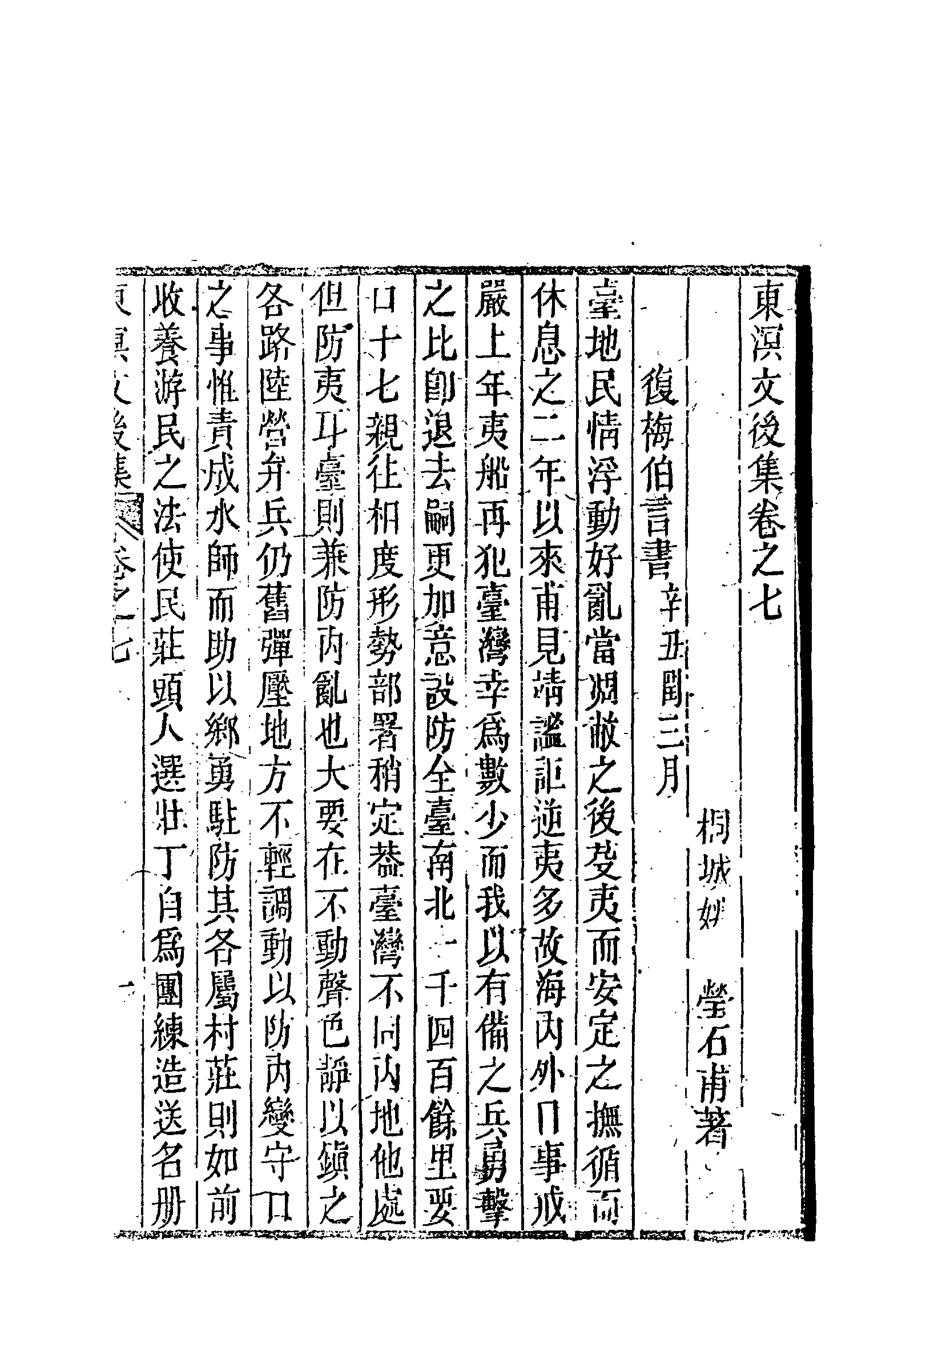 東溟文後集卷之七
桐城姚　瑩石甫著
復梅伯言書辛丑閏三月
臺地民情浮動好亂當凋敝之後芟夷而安定之撫循而
休息之二年以來甫見靖謐詎逆夷多故海內外日事戒
嚴上年夷船再犯臺灣幸爲數少而我以有備之兵勇擊
之比卽退去嗣更加意設防全臺南北一千四百餘里要
口十七親往相度形勢部署稍定葢臺灣不同內地他處
但防夷耳臺則兼防內亂也大要在不動聲色靜以鎮之
各路陸營弁兵仍舊彈壓地方不輕調動以防內變守口
之事惟責成水師而助以鄉勇駐防其各屬村莊則如前
收養游民之法使民莊頭人選壯丁自爲團練造送名册
東溟文後集　卷之七　一